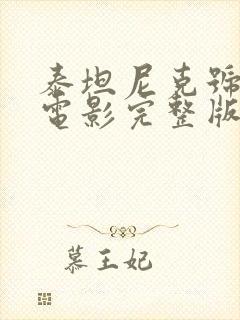 泰坦尼克號
電影完整版
慕王妃